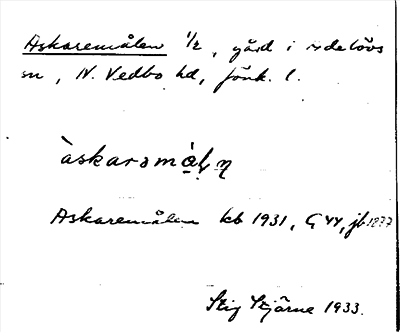 Askaremålen 1/2, gård i Adelövs
sn, N. Vedbo hd, Jönk. l.
àskarəmå̀ḷn̥
Askaremålen kb 1931, G 44, jb 1877
Stig Stjärne 1933.